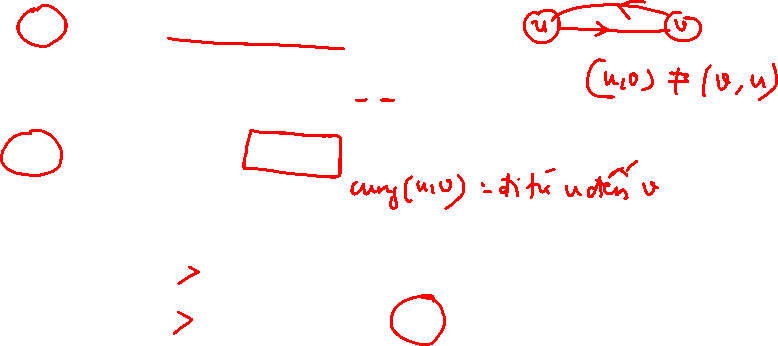 u v
(u,v) ≠ (v, u)
cung (u,v) : đi từ u đến v